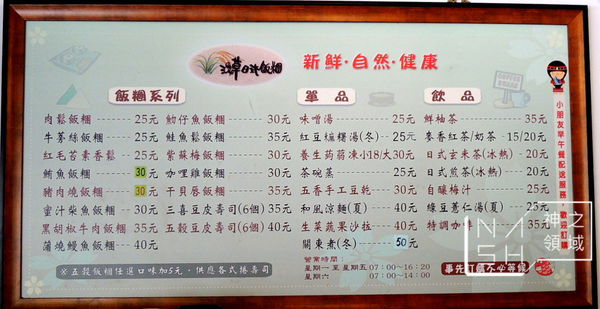 淺草日許飯糰
新鮮·自然·健康
飯糰系列
肉鬆飯糰 25元
牛蒡絲飯糰 25元
紅毛苔素香鬆 25元
鮪魚飯糰 30元
豬肉燒飯糰 30元
蜜汁柴魚飯糰 30元
黑胡椒牛肉飯糰 35元
蒲燒鰻魚飯糰 40元
魩仔魚飯糰 30元
鮭魚鬆飯糰 35元
紫菜梅飯糰 30元
咖哩雞飯糰 30元
干貝唇飯糰 35元
三喜豆皮壽司(6個) 35元
五穀豆皮壽司(6個) 40元
單品
味噌湯 25元
紅豆麻糬湯(冬) 25元
養生蒟蒻凍小18/大30元
茶碗蒸 25元
五香手工豆乾 30元
和風涼麵(夏) 40元
生菜蔬果沙拉 40元
關東煮(冬) 50元
飲品
鮮柚茶 35元
麥香紅茶/奶茶 15/20元
日式玄米茶(冰熱) 20元
日式煎茶(冰熱) 20元
自釀梅汁 25元
綠豆薏仁湯(夏) 25元
特調咖啡 35元
COFFEE
小朋友早午餐配送服務,歡迎訂購
※五穀飯糰任選口味加5元,供應各式捲壽司
營業時間
星期一至星期五07:00~16:20
星期六 07:00~14:00
事先訂購不必等候
NASH
神之領域